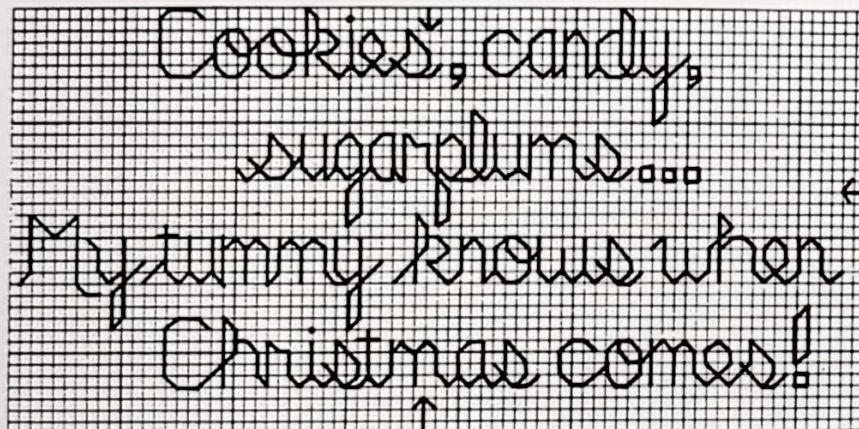 Cookies, candy,
sugarplums...
My tummy knows when
Christmas comes!